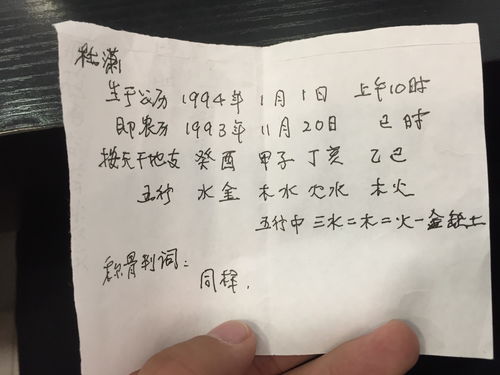 杜潇
生于公历 1994年 1月1日 上午10时
即农历 1993年 11月20日 巳时
按天干地支 癸酉 甲子 丁亥 乙巳
五行 水金 木水 火水 木火
五行中 三水二木二火一金缺土
称骨判词:
同样.